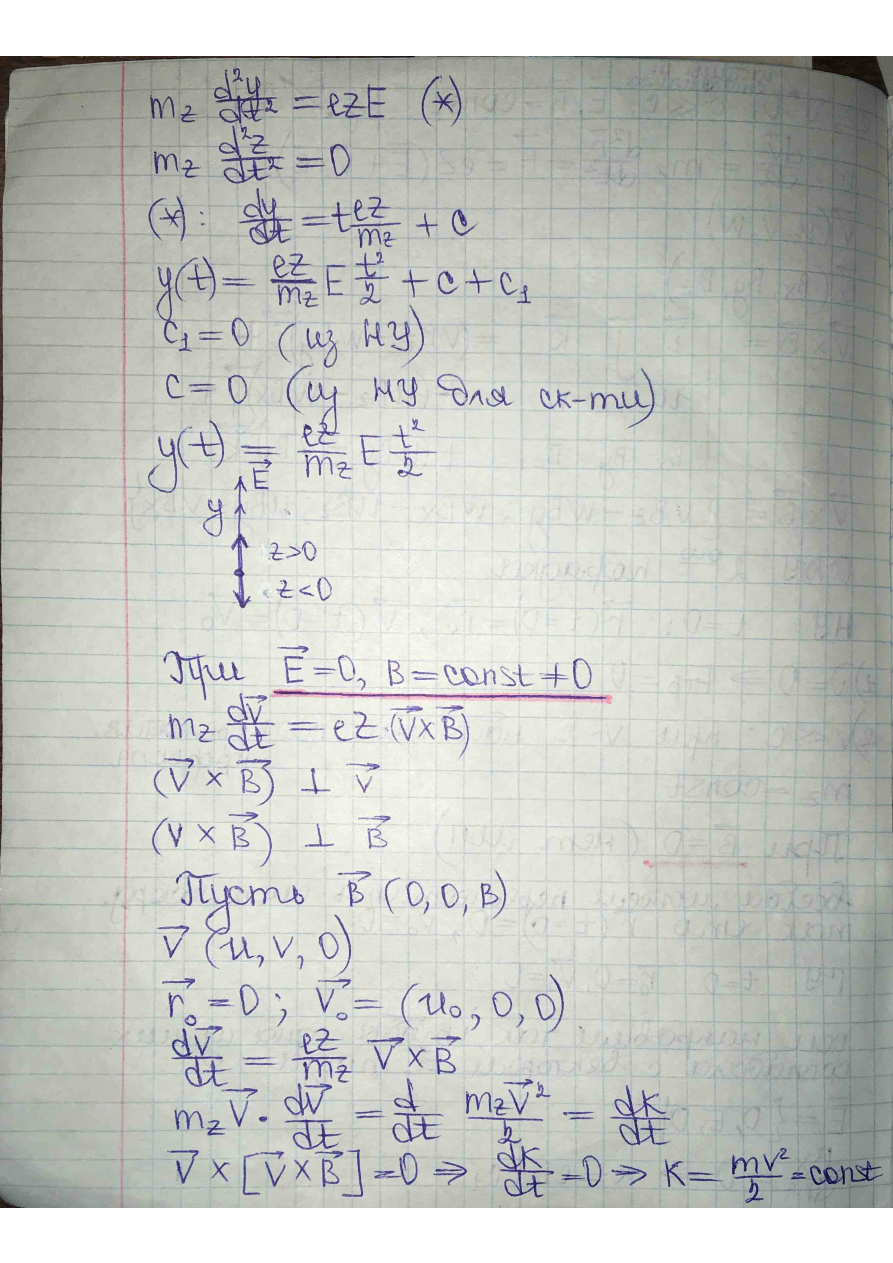 m_z d²y/dt² = ezE (*)
m_z d²z/dt² = 0
(*): dy/dt = t ez/m_z + c
y(t) = ez/m_z E t²/2 + c + c₁
c₁ = 0 (из НУ)
c = 0 (из НУ для ск-ти)
y(t) = ez/m_z E t²/2
E⃗
y
z>0
z<0
При E⃗ = 0, B = const ≠ 0
m_z dv⃗/dt = eZ·(v⃗×B⃗)
(v⃗ × B⃗) ⊥ v⃗
(v × B⃗) ⊥ B⃗
Пусть B⃗ (0, 0, B)
v⃗ (u, v, 0)
r⃗₀ = 0; v⃗₀ = (u₀, 0, 0)
dv⃗/dt = ez/m_z v⃗ × B⃗
m_z v⃗ · dv⃗/dt = d/dt m_z v⃗²/2 = dk/dt
v⃗ × [v⃗ × B⃗] = 0 ⇒ dk/dt = 0 ⇒ k = mv²/2 = const